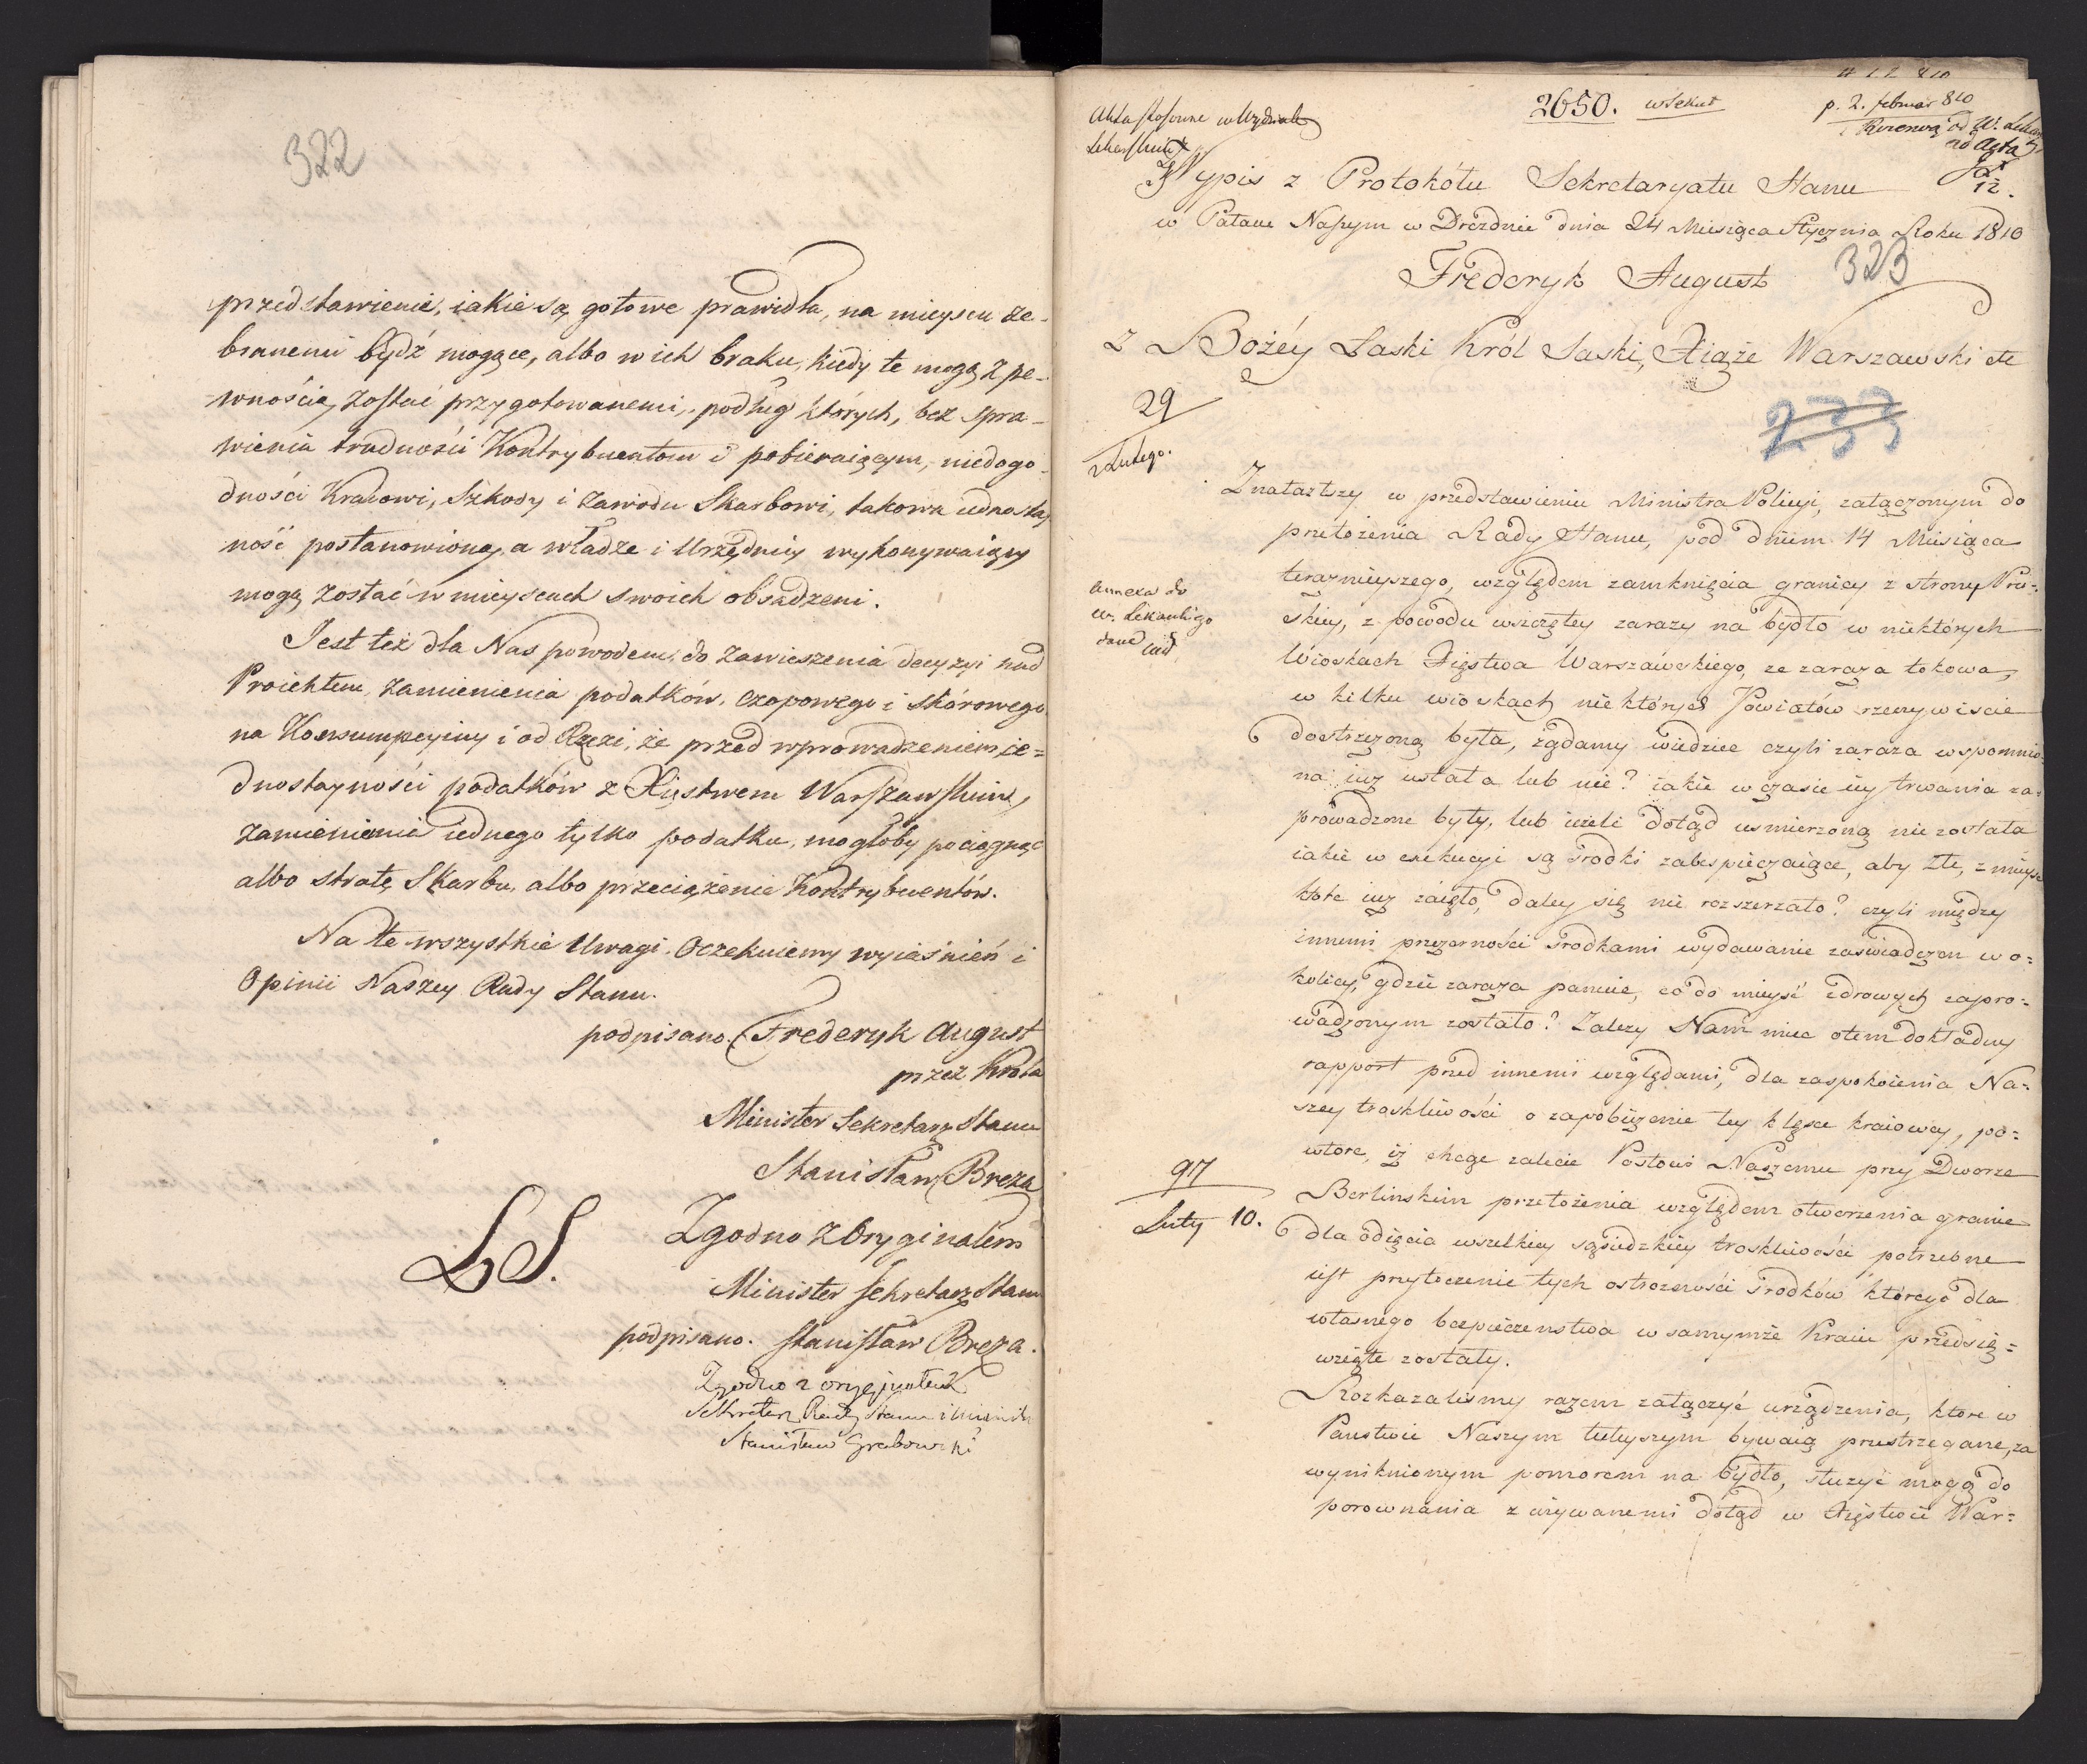 322
przedstawienie, iakie są gotowe prawidła, na mieyscu ze-
branemi bydź mogące, albo w ich braku, kiedy te mogą z pe-
wnością zostać przygotowanemi, podług których, bez spra-
wienia trudności Kontrybuentom i pobieraiącym, niedogo-
dności Kraiowi, Szkody i zawodu Skarbowi, takowa iednostay
ność postanowioną, a władze i Urzędnicy wykonywaiący
mogą zostać w mieyscach swoich obsadzeni.
Jest też dla Nas powodem, do zawieszenia decyzyi nad
Proiektem, zamienienia podatków, czopowego i skórowego
na Konsumpcyiny i od Rzezi, że przed wprowadzeniem ie=
dnostayności podatków z Xięstwem Warszawskim,
zamienienie iednego tylko podatku, mogłoby pociągnąć
albo stratę Skarbu, albo przeciążenie Kontrybuentów.
Na te wszystkie Uwagi. Oczekuiemy wyiaśnień i
Opinii Naszey Rady Stanu.
podpisano. Frederyk August
przez Króla
Minister Sekretarz Stanu
Stanisław Breza
LS.
Zgodno z Oryginałem
Minister Sekretarz Stanu
podpisano. Stanisław Breza.
Zgodno z oryginałem
Sekretarz Rady Stanu i Ministr
Stanisław Grabowski
2650. wSekret
p. 2. februar 810
Akta stosowne w Wydziale
Lekarskim
ad Acta
12.
Wypis z Protokółu Sekretaryatu Stanu
w Pałacu Naszym w Dreznie dnia 24 Miesiąca Stycznia Roku 1810
323
Frederyk August
z Bożéy Łaski Król Saski, Xiąże Warszawski etc
29
2 Lutego.
233
Znalazłszy w przedstawieniu Ministra Policyi, załączonym do
przełożenia Rady Stanu, pod dniem 14 Miesiąca
teraznieyszego, względem zamknięcia granicy z strony Pru=
skiey, z powodu wszczętey zarazy na bydło w niektórych
Wioskach Xięstwa Warszawskiego, ze zaraza takowa,
w kilku wioskach niektórych Powiatów rzeczywiscie
dostrzeżoną była, żądamy wiedziec czyli zaraza wspomnio
na iuż ustała lub nie? iakie w czasie iey trwania za=
prowadzone były, lub ieżeli dotąd usmierzoną nie została
iakie w exekucyi są srodki zabespieczaiące, aby złe, z mieysc
które iuż zaięło, daley się nie rozszerzało? czyli między
innemi przezorności srodkami wydawanie zaswiadczen w o=
kolicy, gdzie zaraza panuie, co do mieysć zdrowych zapro=
wadzonym zostało? Zalezy Nam miec o tem dokładny
rapport przed innemi względami, dla zaspokoienia Na=
szey troskliwości o zapobieżenie tey klęsce kraiowey, po=
wtore, iż chcąc zalecic Posłowi Naszemu przy Dworze
Berlinskim przełożenia względem otworzenia granic
dla odięcia wszelkiey sąsiedzkiey troskliwości potrzebne
iest przytoczenie tych ostrozności srodków którego dla
własnego bezpieczenstwa w samymże Kraiu przedsię=
wzięte zostały.
Rozkazalismy razem załączyć urządzenia, ktore w
Panstwie Naszym tuteyszym bywaią przestrzegane, za
wyniknionym pomorem na bydło, służyć mogą do
porownania z używanemi dotąd w Xięstwie War=
Annexa do
W. Lekarskiego
dane
97
Luty 10.